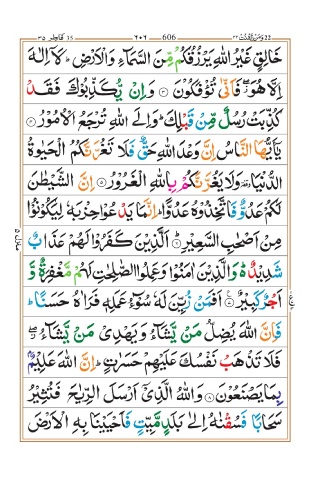 ومن يقنت ٢٢ ٢٠٢ 606 فاطر ٣٥
خَالِقٍ غَيْرُ اللّٰهِ يَرْزُقُكُمْ مِّنَ السَّمَآءِ وَالْاَرْضِ ؕ لَاۤ اِلٰهَ
اِلَّا هُوَ ۖ فَاَنّٰى تُؤْفَكُوْنَ ۝٣ وَاِنْ يُّكَذِّبُوْكَ فَقَدْ
كُذِّبَتْ رُسُلٌ مِّنْ قَبْلِكَ ؕ وَاِلَى اللّٰهِ تُرْجَعُ الْاُمُوْرُ ۝٤
يٰۤاَيُّهَا النَّاسُ اِنَّ وَعْدَ اللّٰهِ حَقٌّ فَلَا تَغُرَّنَّكُمُ الْحَيٰوةُ
الدُّنْيَا ۥ وَلَا يَغُرَّنَّكُمْ بِاللّٰهِ الْغَرُوْرُ ۝٥ اِنَّ الشَّيْطٰنَ
لَكُمْ عَدُوٌّ فَاتَّخِذُوْهُ عَدُوًّا ؕ اِنَّمَا يَدْعُوْا حِزْبَهٗ لِيَكُوْنُوْا
مِنْ اَصْحٰبِ السَّعِيْرِ ۝٦ اَلَّذِيْنَ كَفَرُوْا لَهُمْ عَذَابٌ
شَدِيْدٌ ۬ؕ وَالَّذِيْنَ اٰمَنُوْا وَعَمِلُوا الصّٰلِحٰتِ لَهُمْ مَّغْفِرَةٌ وَّ
اَجْرٌ كَبِيْرٌ ۝٧ اَفَمَنْ زُيِّنَ لَهٗ سُوْٓءُ عَمَلِهٖ فَرَاٰهُ حَسَنًا ؕ
فَاِنَّ اللّٰهَ يُضِلُّ مَنْ يَّشَآءُ وَيَهْدِىْ مَنْ يَّشَآءُ ۖ
فَلَا تَذْهَبْ نَفْسُكَ عَلَيْهِمْ حَسَرٰتٍ ؕ اِنَّ اللّٰهَ عَلِيْمٌۢ
بِمَا يَصْنَعُوْنَ ۝٨ وَاللّٰهُ الَّذِىْۤ اَرْسَلَ الرِّيٰحَ فَتُثِيْرُ
سَحَابًا فَسُقْنٰهُ اِلٰى بَلَدٍ مَّيِّتٍ فَاَحْيَيْنَا بِهِ الْاَرْضَ